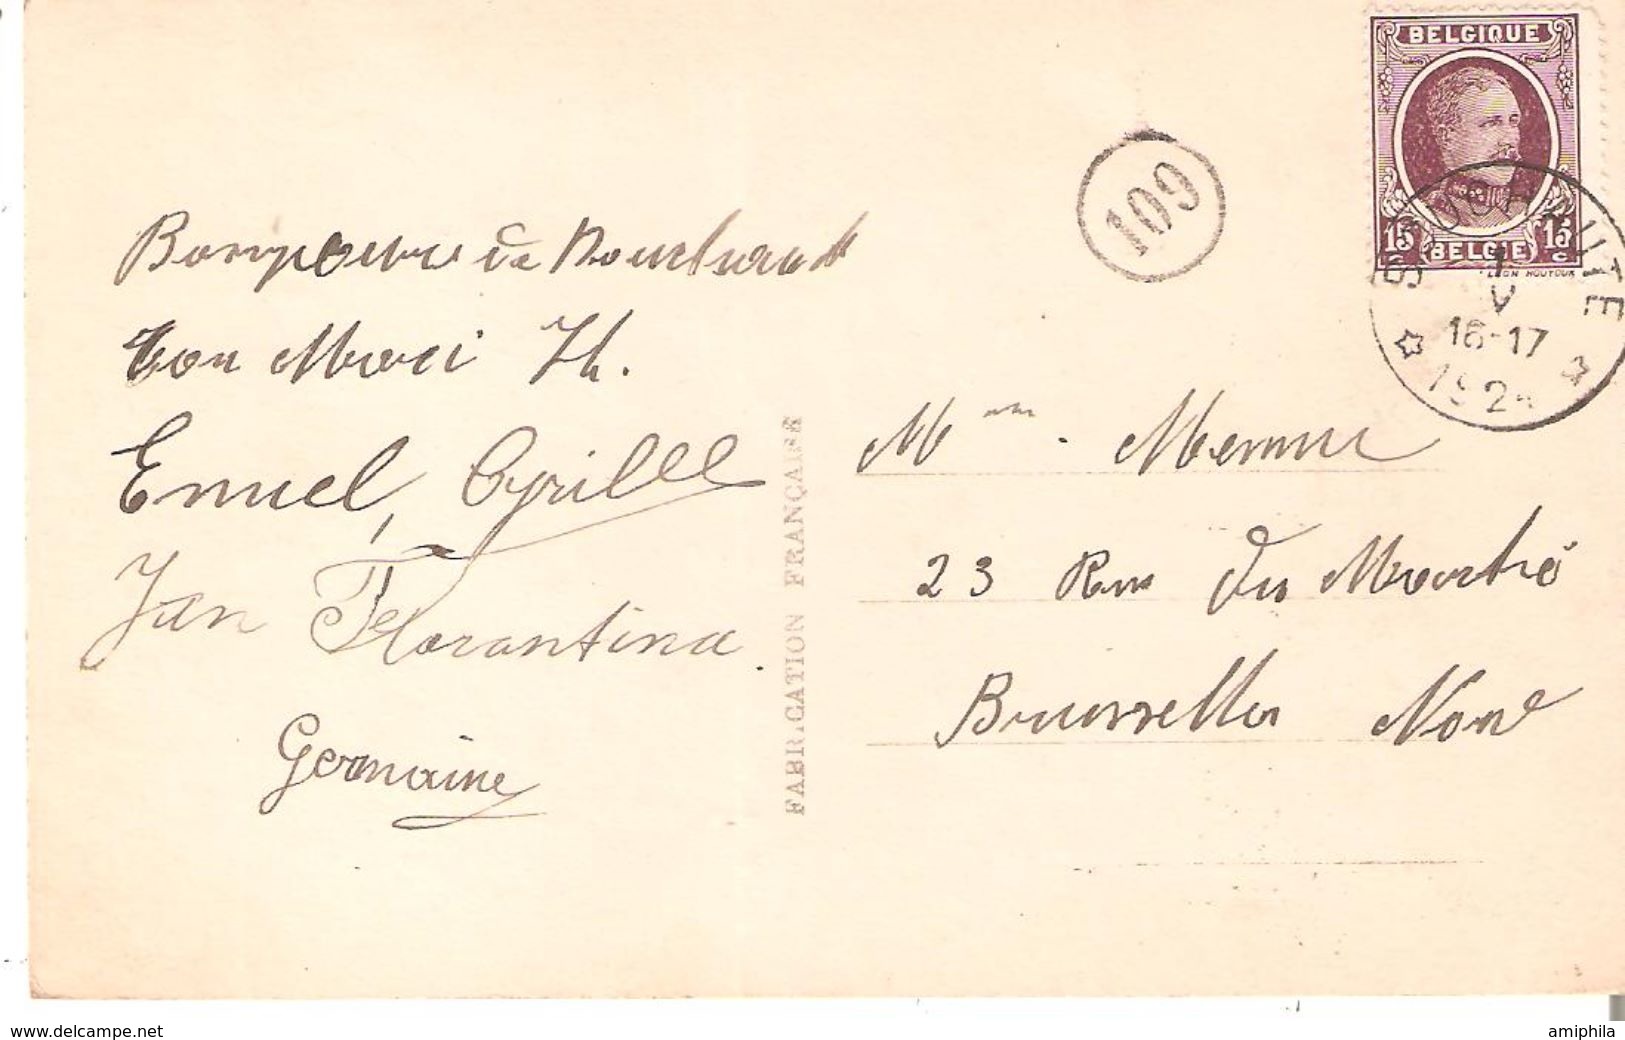 BELGIQUE
15 15
BELGIE
109
BOUCHAUTE
16-17
Bonjour de Bouchaute
ton Mari Th.
Emiel, Cyrille
Jan Florantina.
Germaine
FABRICATION FRANÇAISE
Mme.
23 Rue du Marché
Bruxelles Nord
www.delcampe.net
amiphila